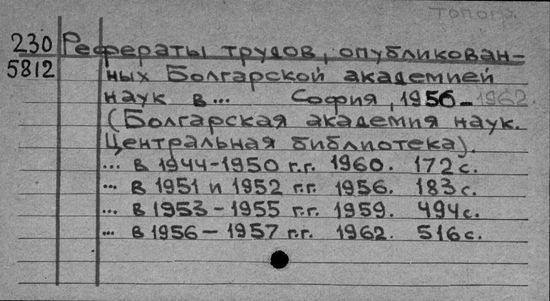 топогр.
230 Рефераты трудов, опубликован-
5812 ных Болгарской академией
наук в... София, 1956-1962.
(Болгарская академия наук.
Центральная библиотека).
... в 1944-1950 г.г. 1960. 172 с.
... в 1951 и 1952 г.г. 1956. 183 с.
... в 1953-1955 г.г. 1959. 494 с.
... в 1956-1957 г.г. 1962. 516 с.